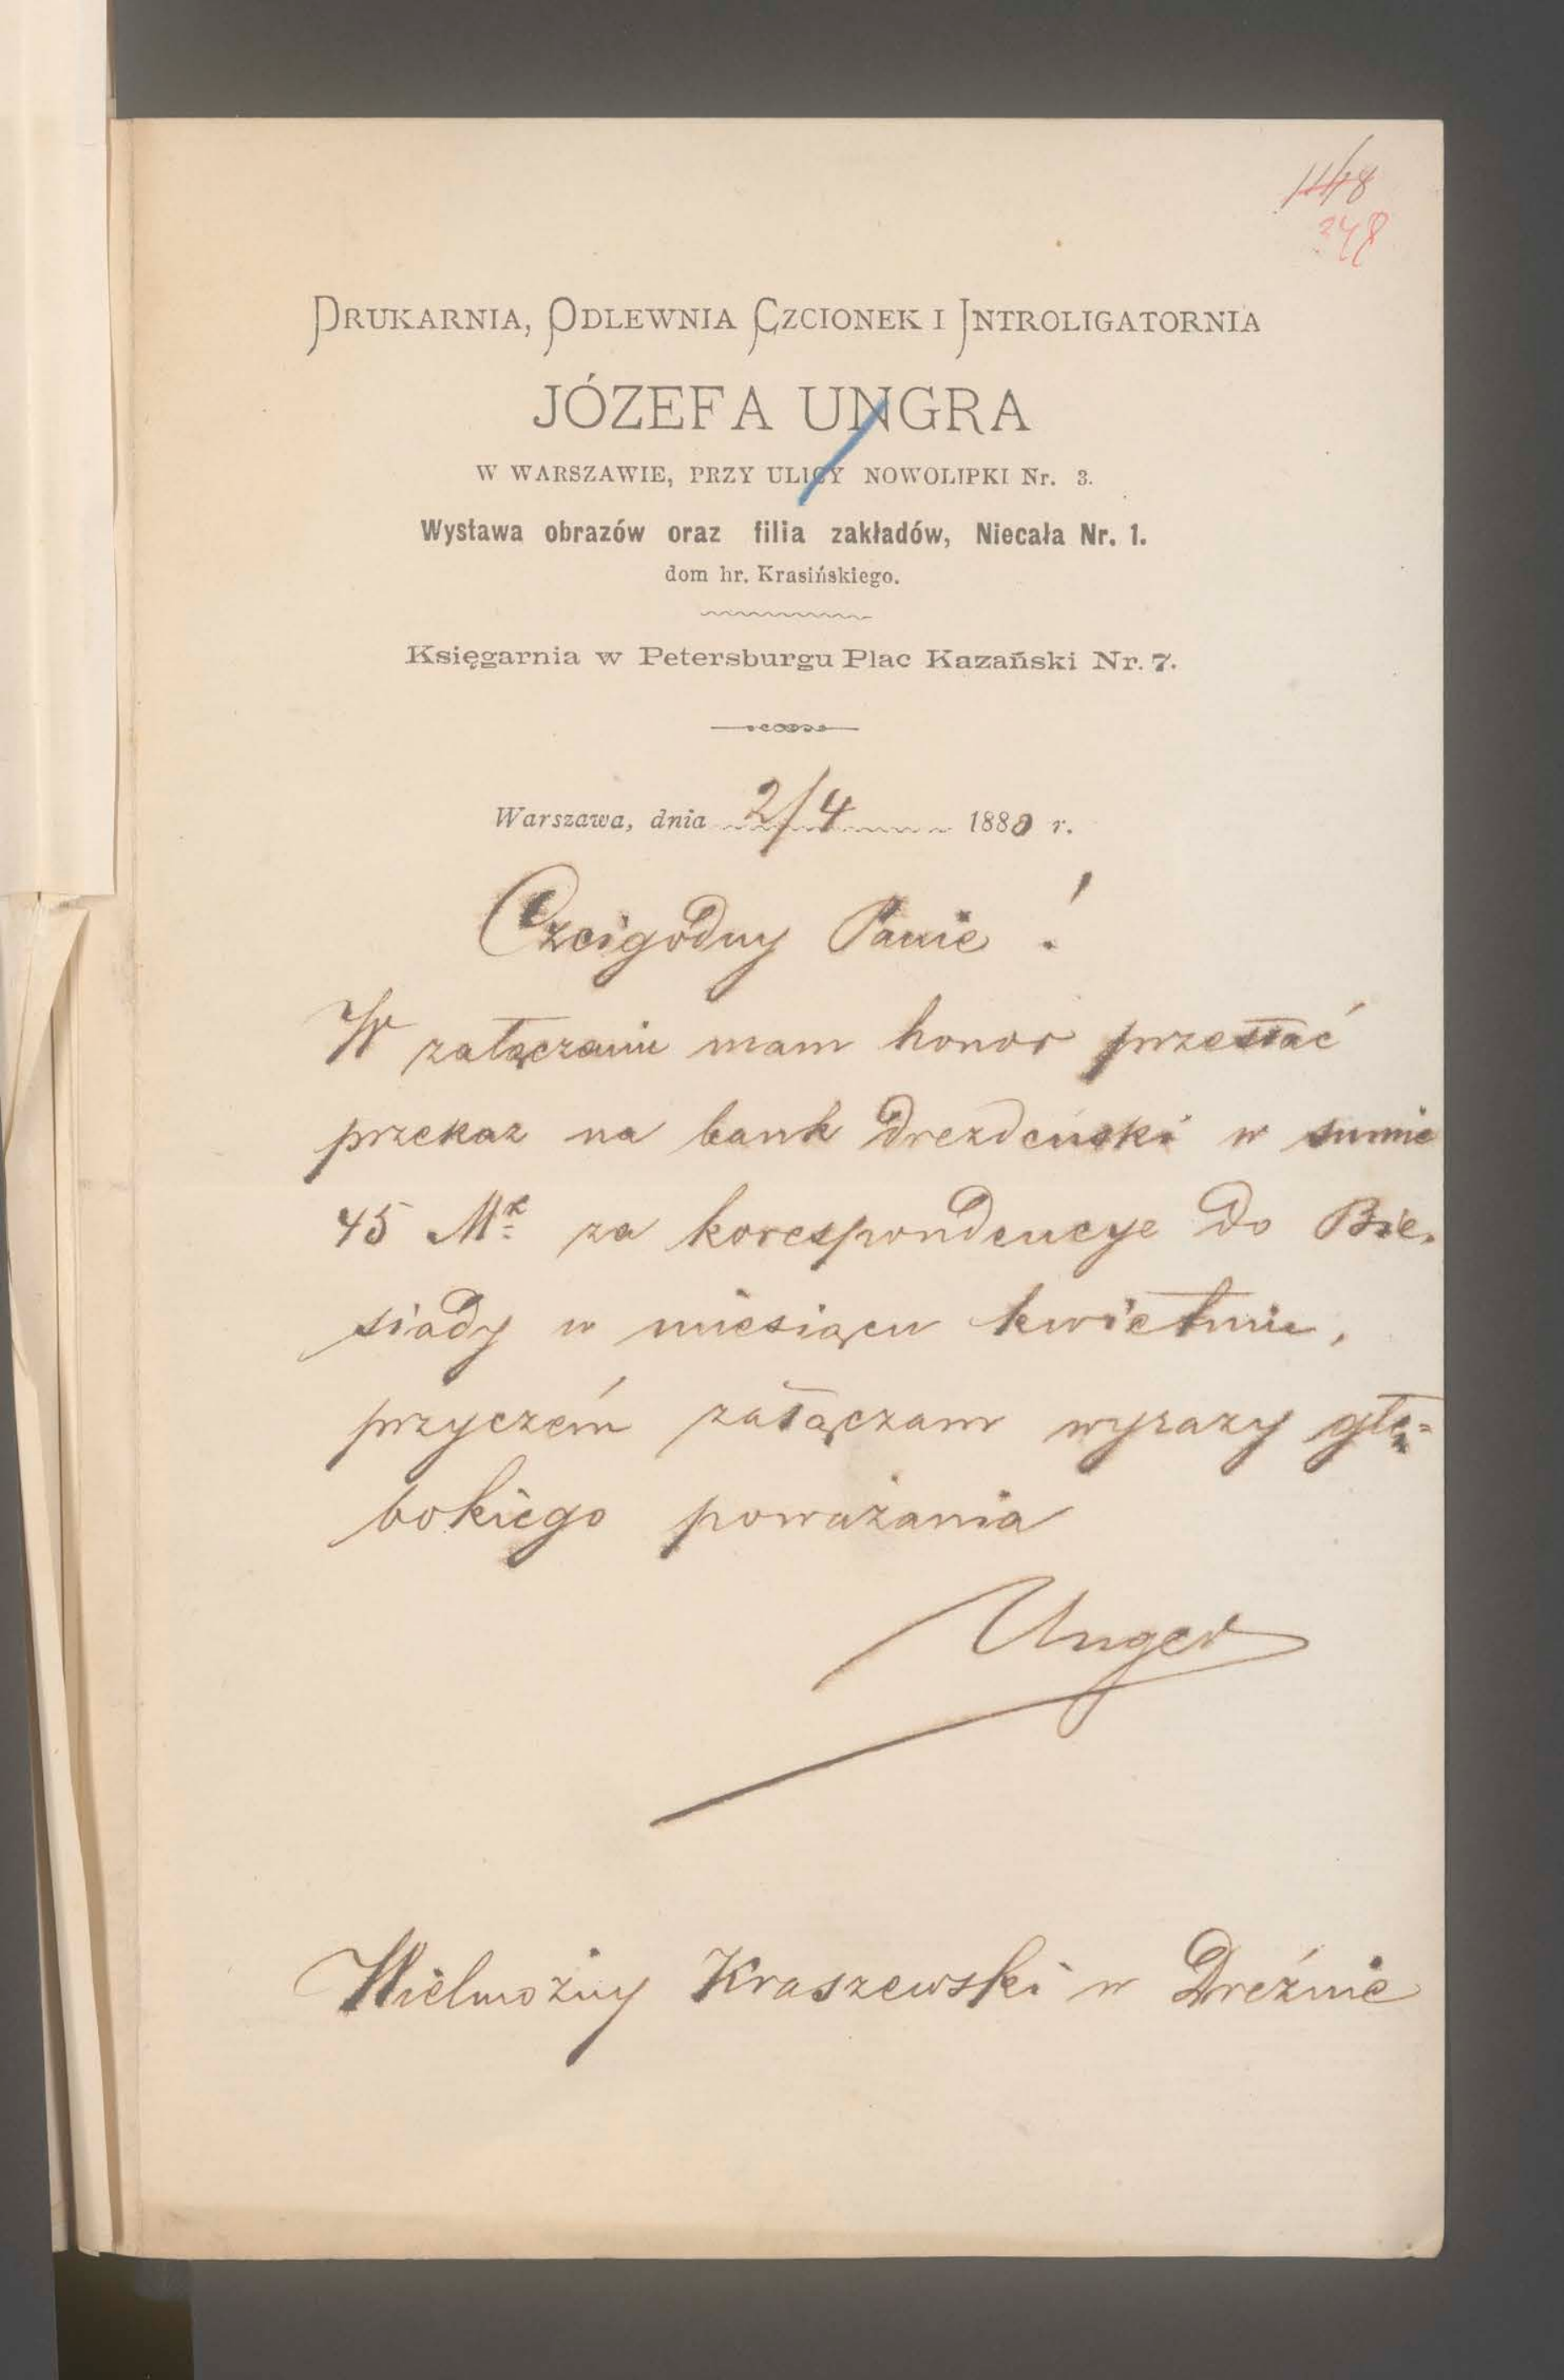 348
DRUKARNIA, ODLEWNIA CZCIONEK I INTROLIGATORNIA
JÓZEFA UNGRA
W WARSZAWIE, PRZY ULICY NOWOLIPKI Nr. 3.
Wystawa obrazów oraz filia zakładów, Niecała Nr. 1.
dom hr. Krasińskiego.
Księgarnia w Petersburgu Plac Kazański Nr. 7.
Warszawa, dnia 2/4 1880 r.
Czcigodny Panie!
W załączeniu mam honor przesłać
przekaz na bank Drezdeński w sumie
45 Mk za korespondencye do Bie-
siady w miesiącu kwietniu,
przyczém załączam wyrazy głę-
bokiego poważania
Unger
Wielmożny Kraszewski w Dreźnie